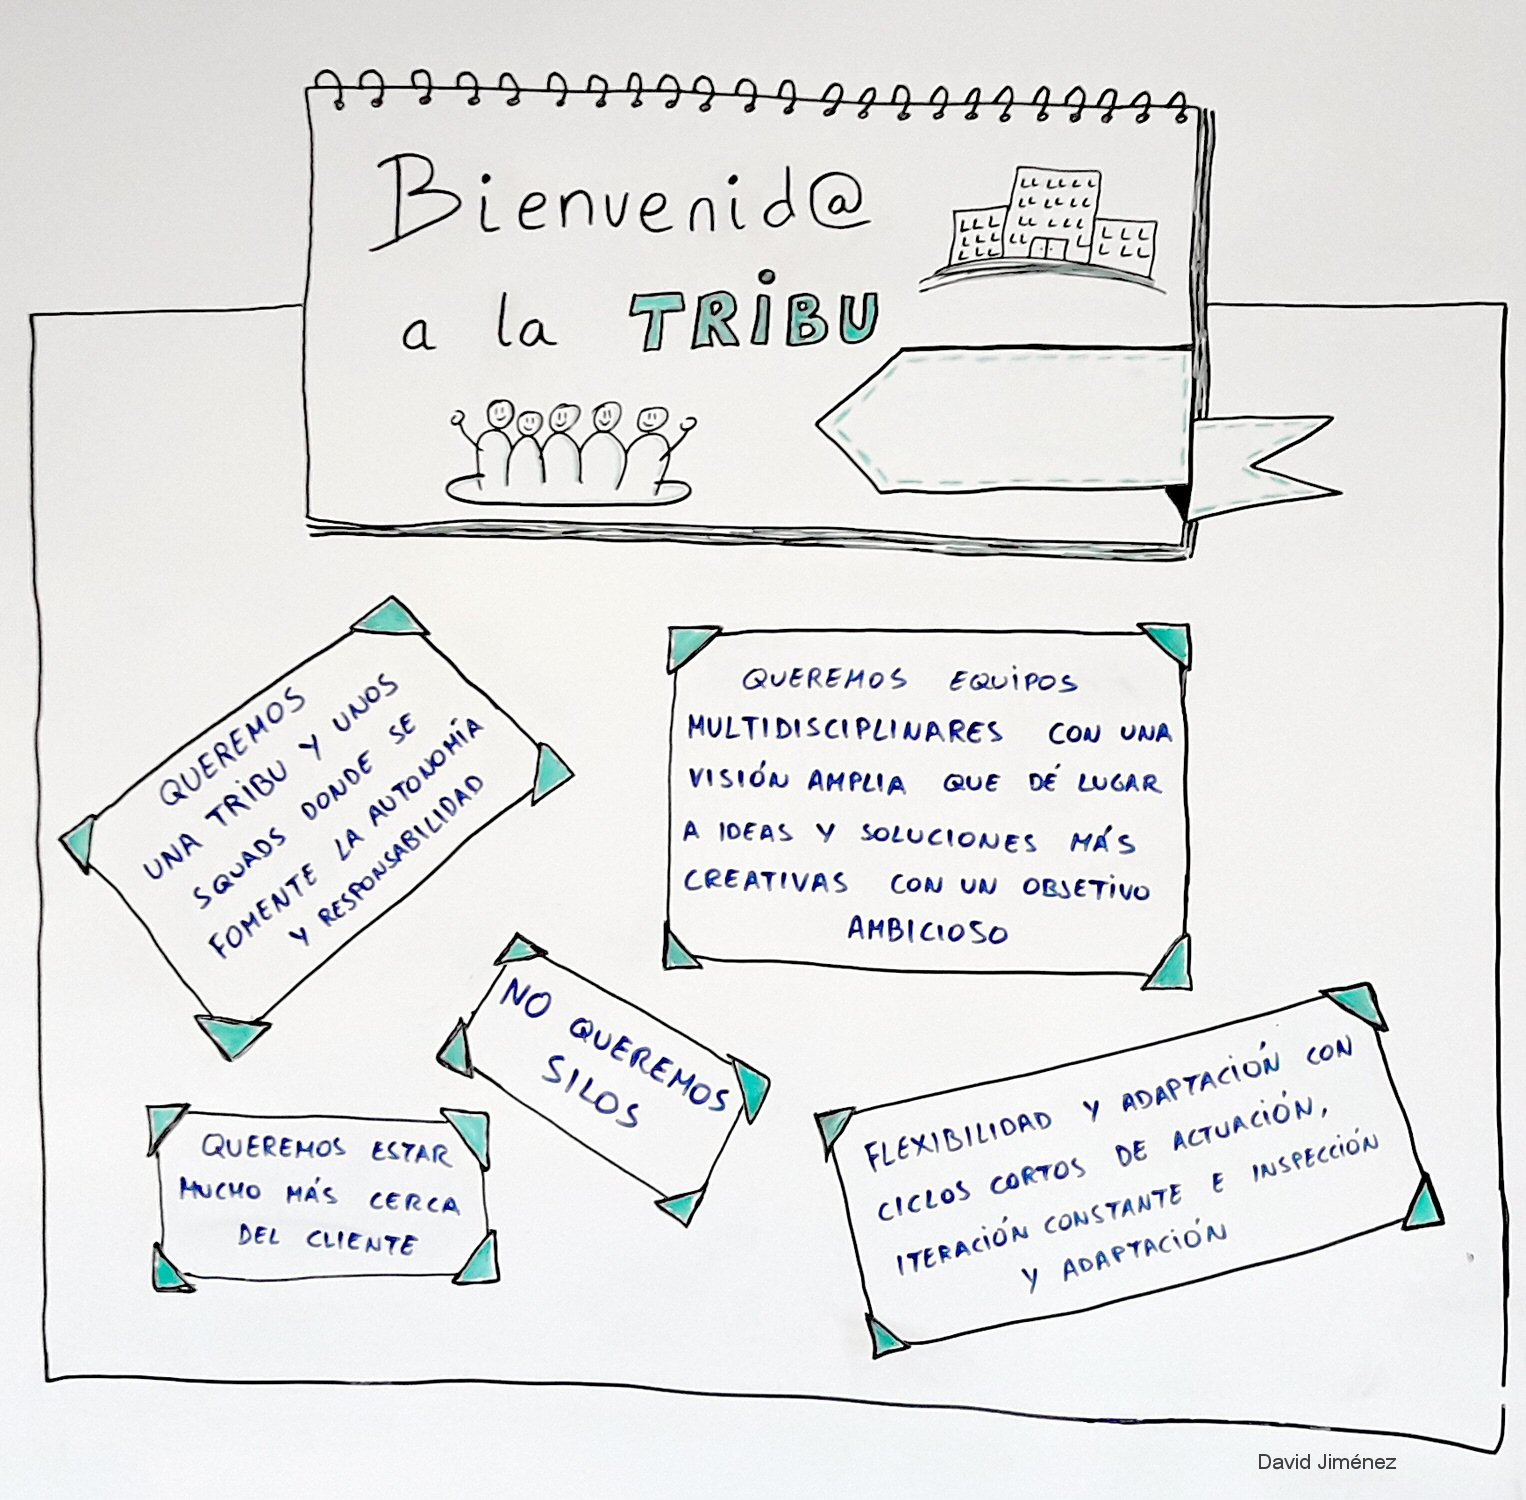 Bienvenid@
a la TRIBU
QUEREMOS
UNA TRIBU Y UNOS
SQUADS DONDE SE
FOMENTE LA AUTONOMÍA
Y RESPONSABILIDAD
QUEREMOS EQUIPOS
MULTIDISCIPLINARES CON UNA
VISIÓN AMPLIA QUE DÉ LUGAR
A IDEAS Y SOLUCIONES MÁS
CREATIVAS CON UN OBJETIVO
AMBICIOSO
NO QUEREMOS
SILOS
QUEREMOS ESTAR
MUCHO MÁS CERCA
DEL CLIENTE
FLEXIBILIDAD Y ADAPTACIÓN CON
CICLOS CORTOS DE ACTUACIÓN,
ITERACIÓN CONSTANTE E INSPECCIÓN
Y ADAPTACIÓN
David Jiménez